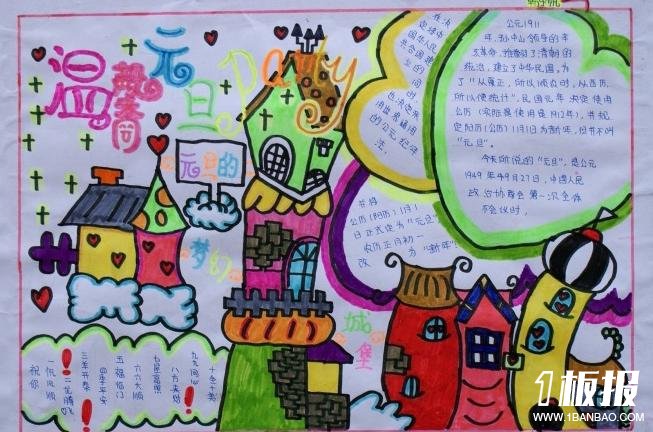 温馨
元旦
Party
元旦的
梦幻
城堡
公元1911
年,孙中山领导的辛
亥革命,推翻了清朝的
统治,建立了中华民国。为
了"从夏正,所以顺农时,从西历,
所以便统计",民国元年决定使用
公历(实际使用是1912年),并规
定阳历(公历)1月1日为"新年",但并不叫
"元旦"。
今天所说的"元旦",是公元
1949年9月27日,中国人民
政治协商会第一次全体
会议时,
并将
公历(阳历)1月1
日正式定为"元旦"
农历正月初一
改为"新年"
祝你
一帆风顺
二龙腾飞
三羊开泰
四季平安
五福临门
六六顺
七星高照
八方来财
九九同心
十全十美
1板报
WWW.1BANBAO.COM